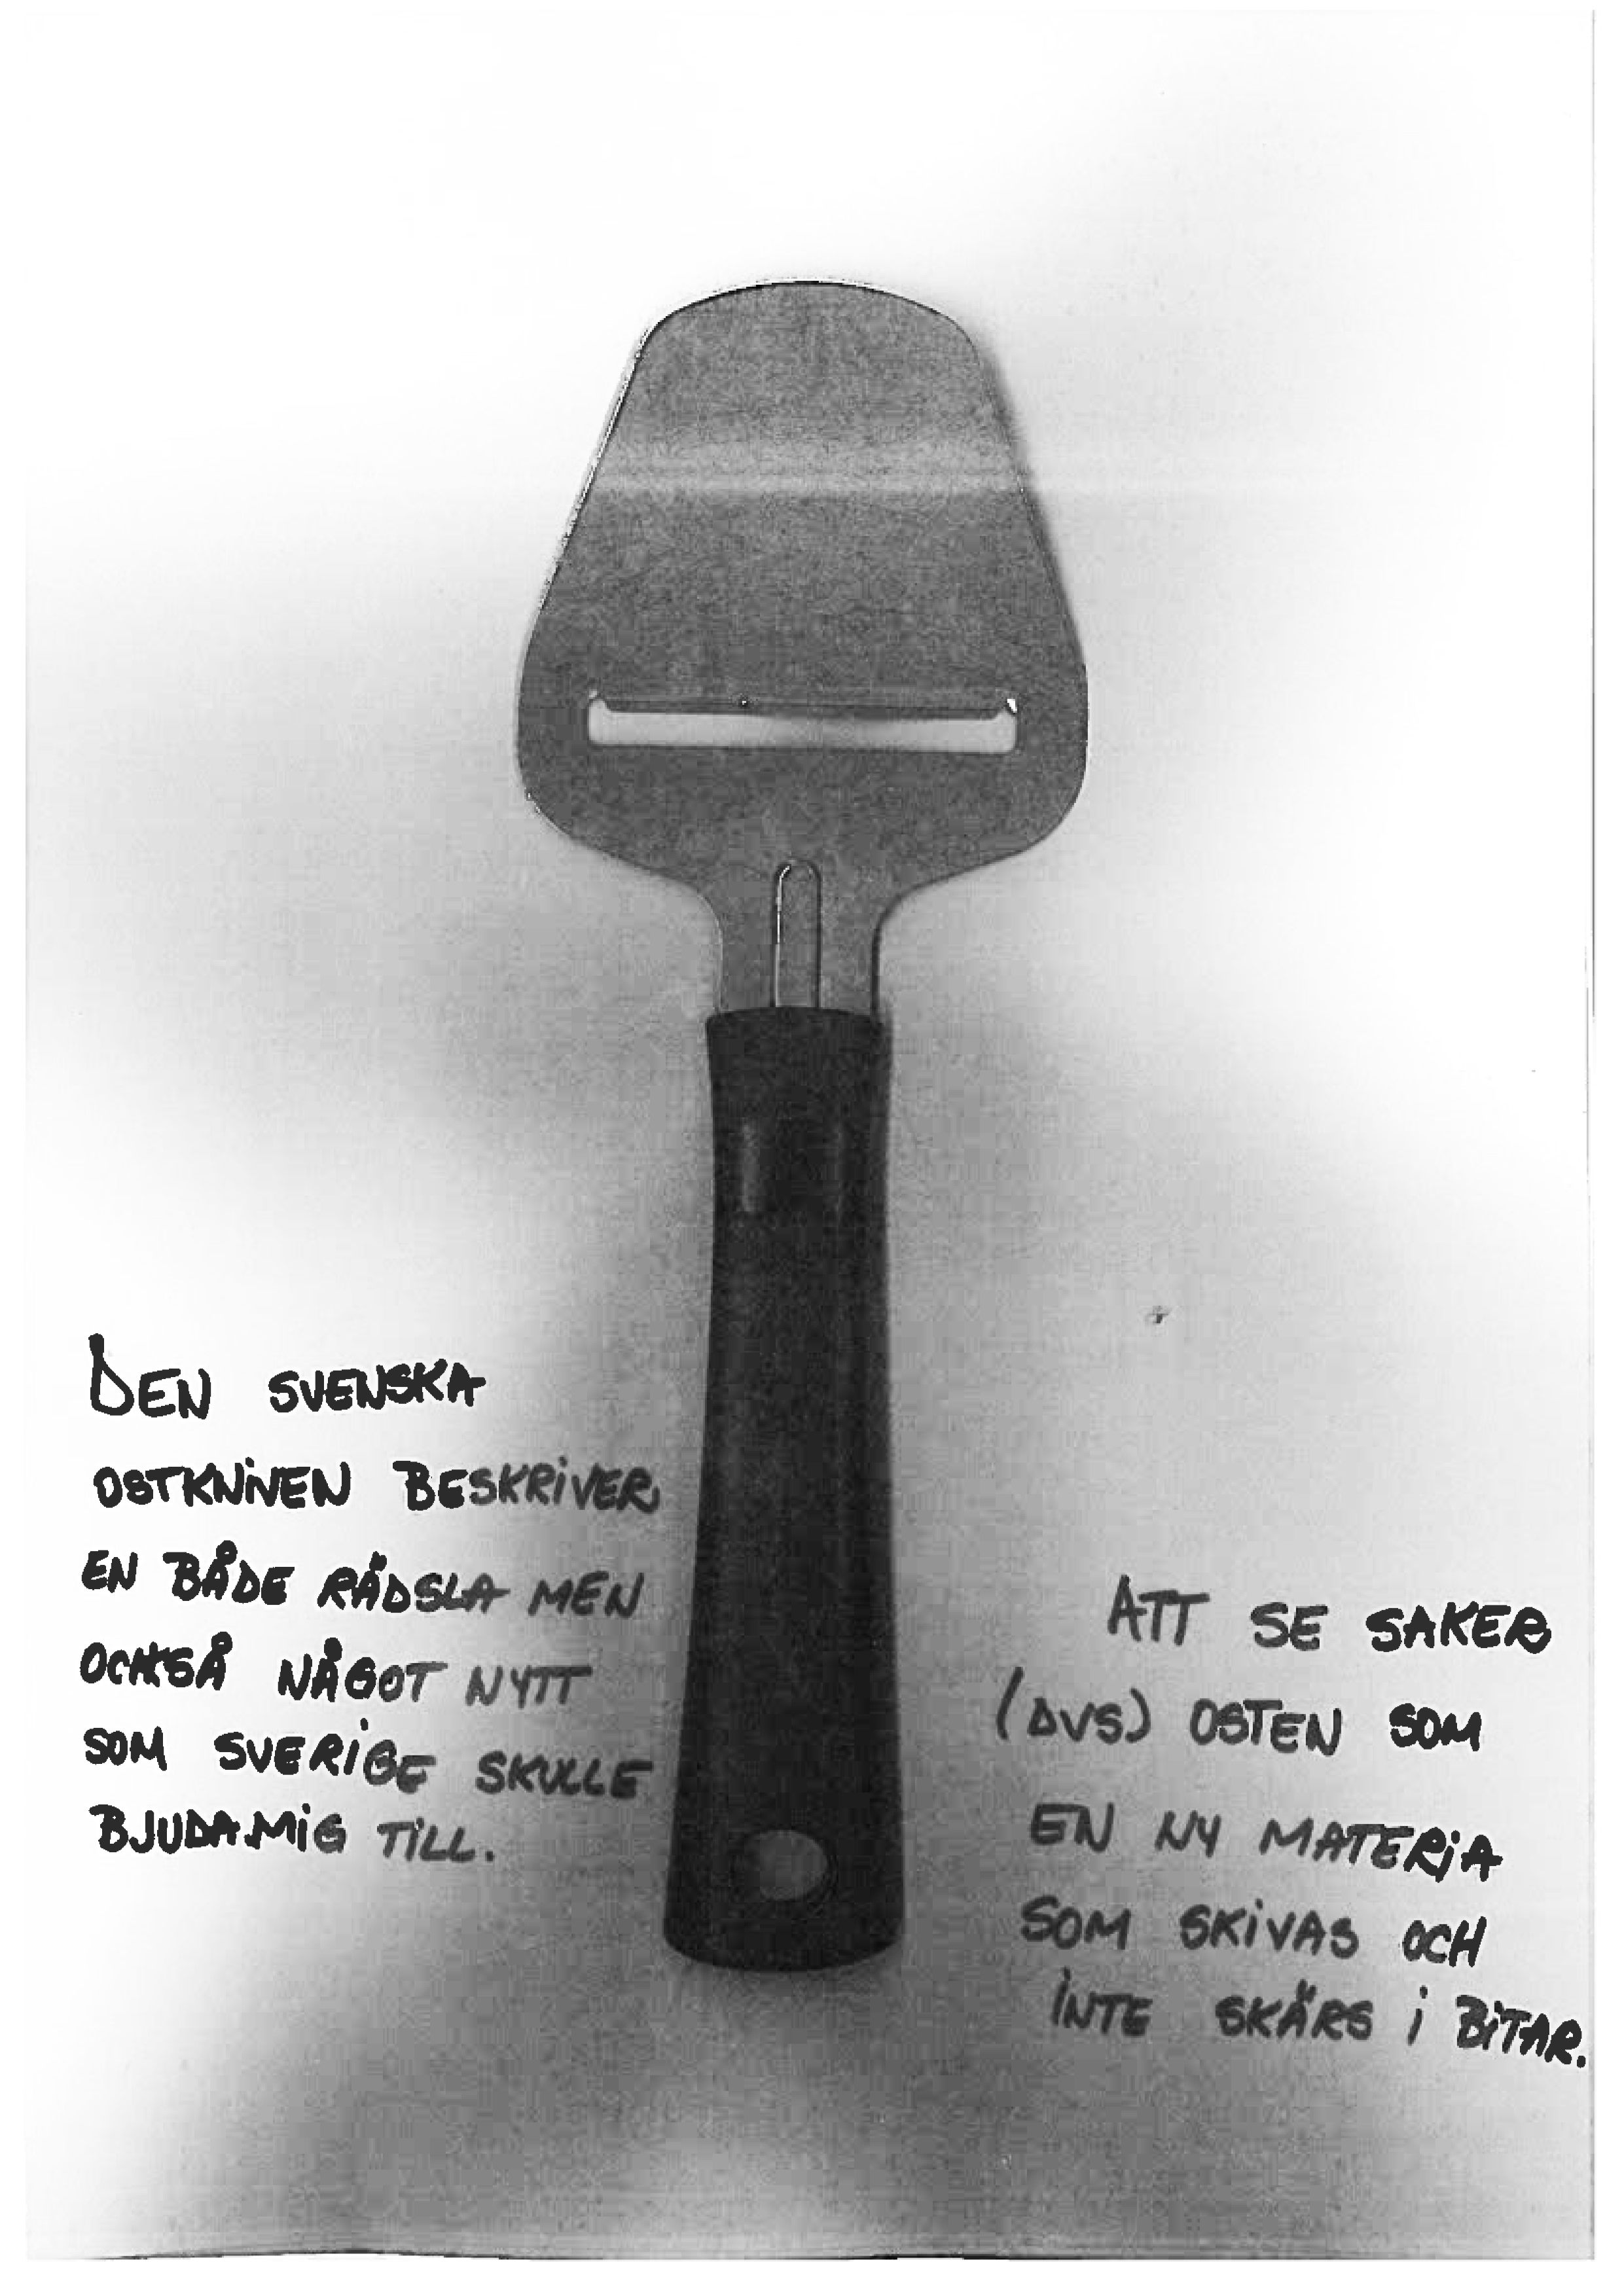 DEN SVENSKA
OSTKNIVEN BESKRIVER
EN BÅDE RÄDSLA MEN
OCKSÅ NÅGOT NYTT
SOM SVERIGE SKULLE
BJUDA MIG TILL.
ATT SE SAKER
(DVS) OSTEN SOM
EN NY MATERIA
SOM SKIVAS OCH
INTE SKÄRS I BITAR.